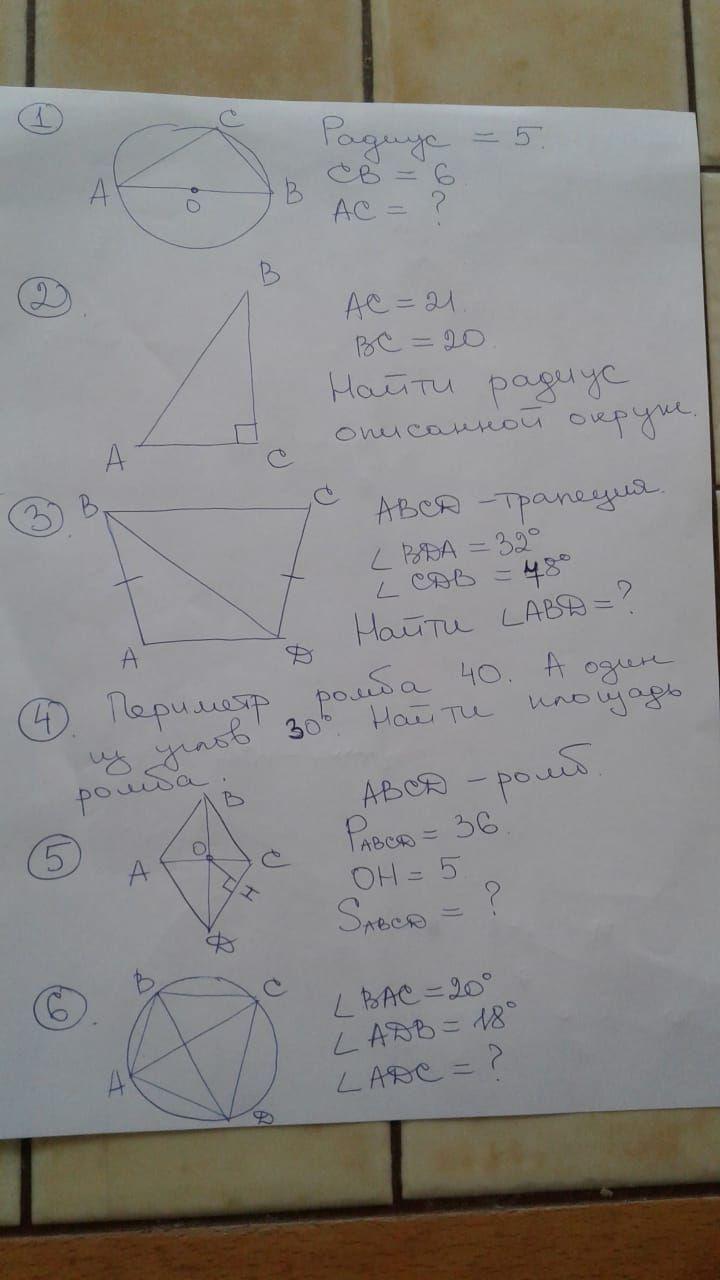 1
C
A
O
B
Радиус = 5.
CB = 6
AC = ?
2.
B
A
C
AC = 21.
BC = 20.
Найти радиус
описанной окруж.
3.
B
C
A
D
ABCD - трапеция.
∠ BDA = 32°
∠ CDB = 48°
Найти ∠ABD = ?
4. Периметр ромба 40. А один
из углов 30°. Найти площадь
ромба.
5
B
A
O
C
H
D
ABCD - ромб.
P ABCD = 36.
OH = 5
S ABCD = ?
6.
B
C
A
D
∠ BAC = 20°
∠ ADB = 18°
∠ ADC = ?